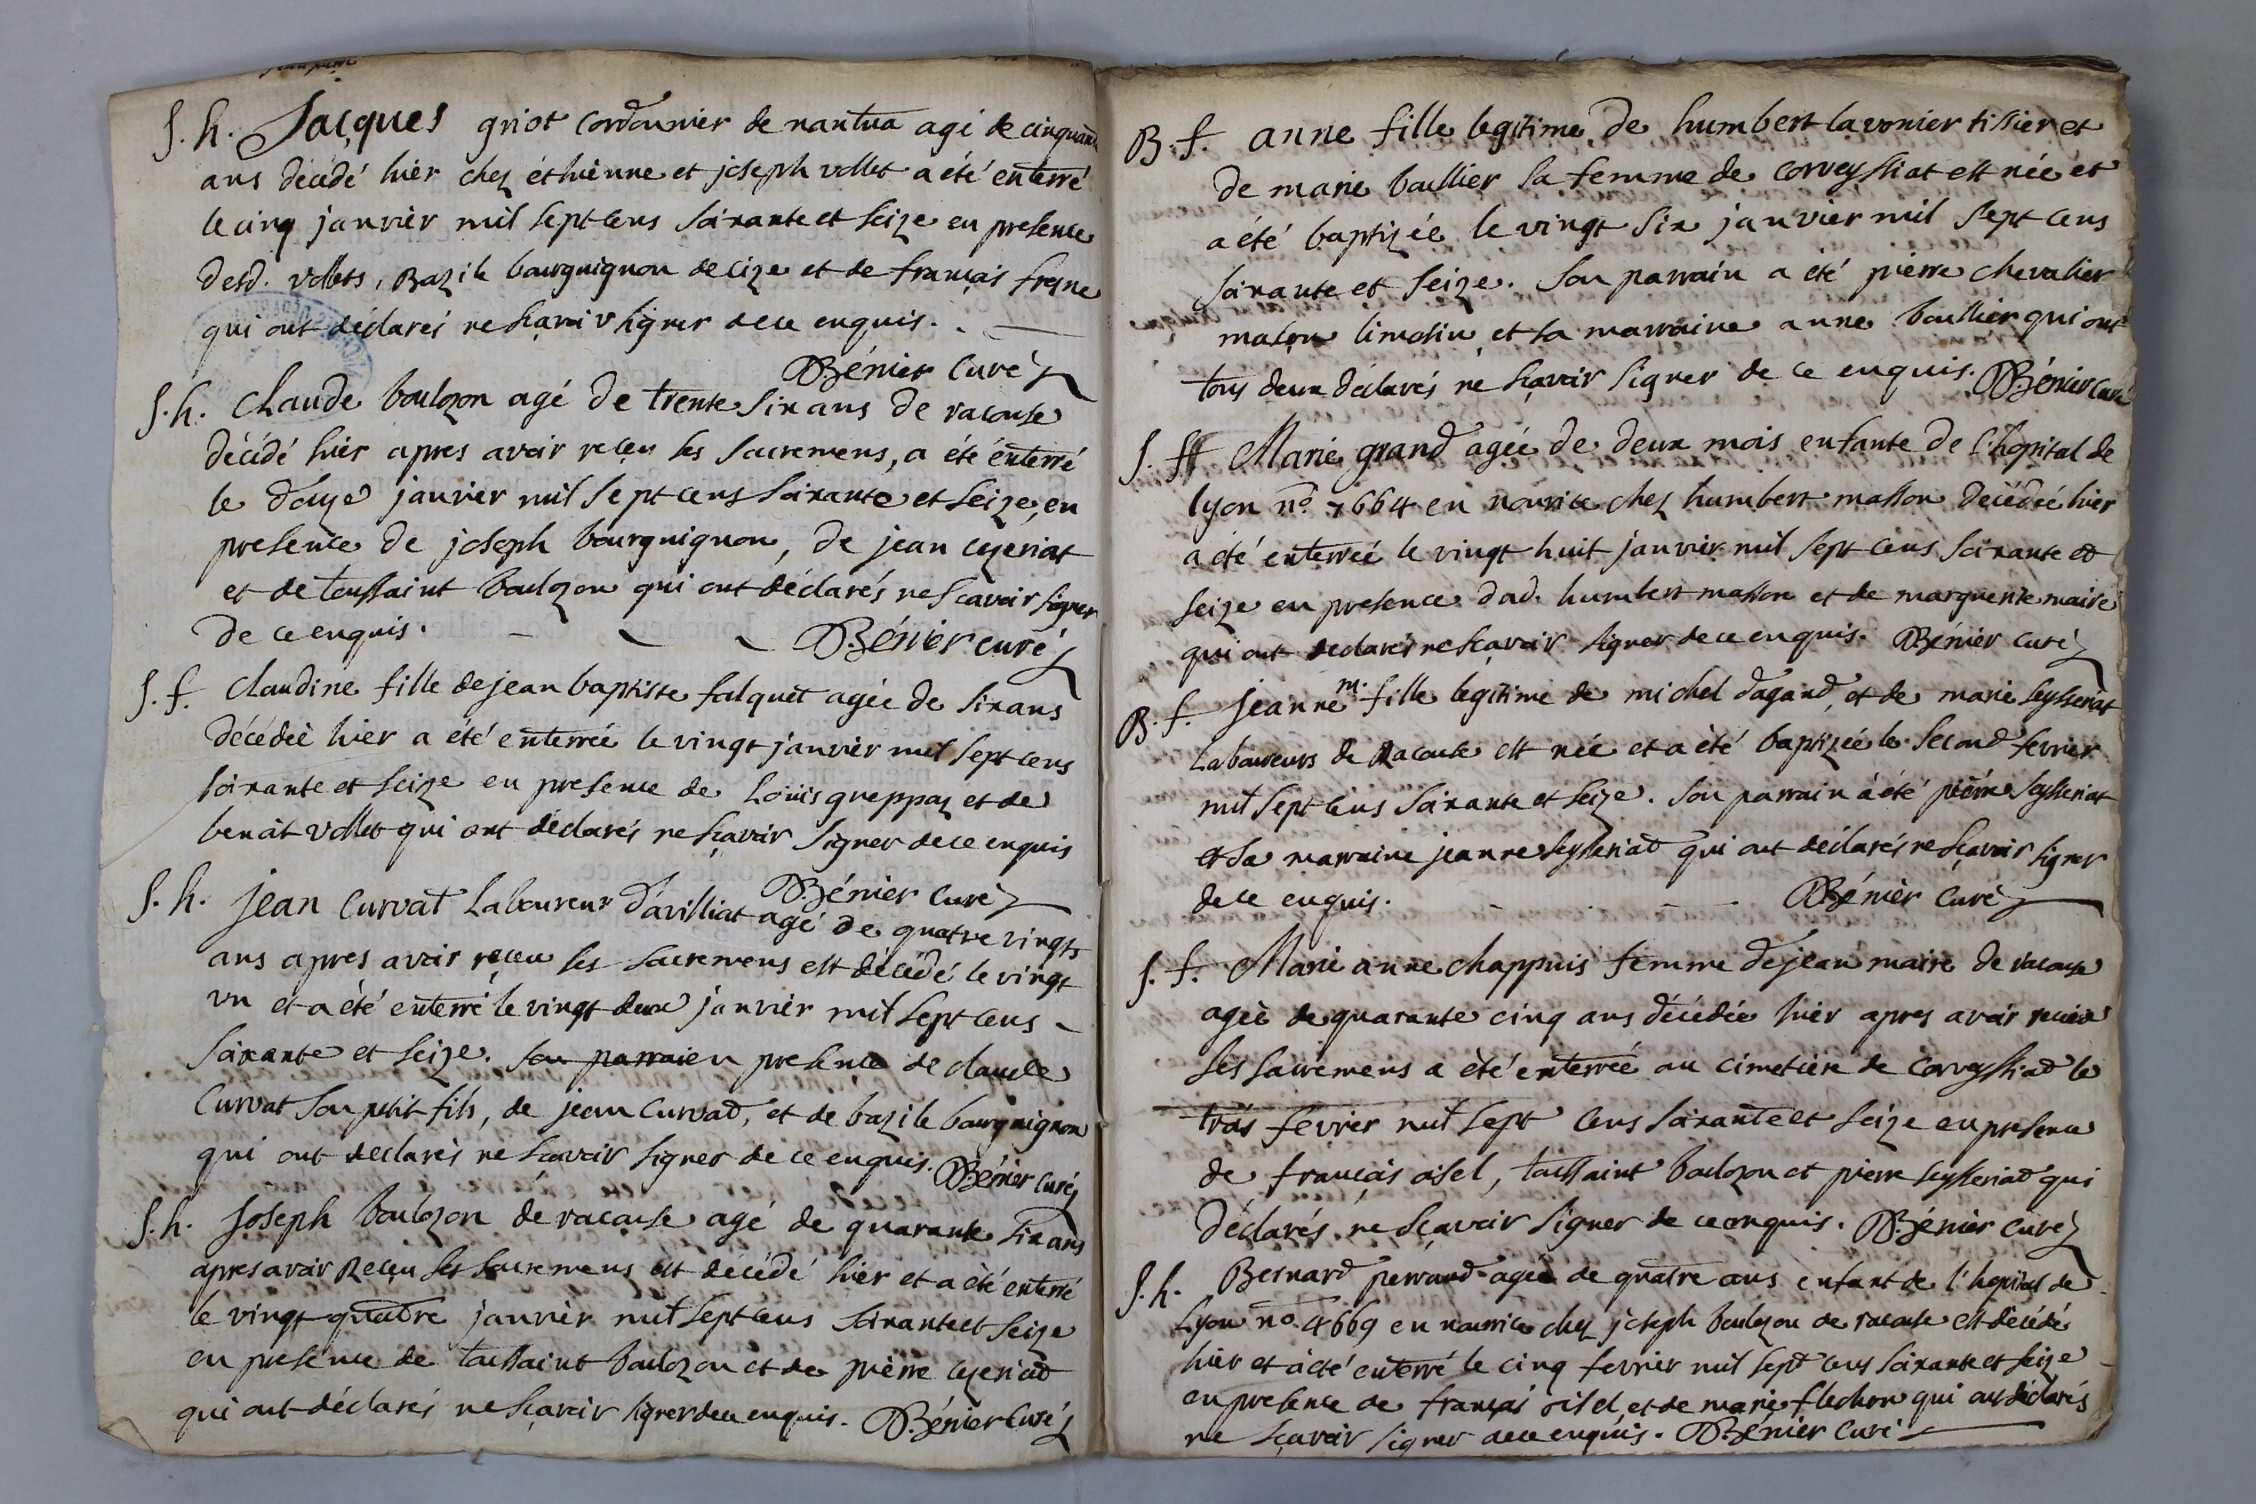 S. h. Jacques griot cordonnier de nantua agé de cinquante
ans décédé hier chez éthienne et joseph vollet a été enterré
le cinq janvier mil sept cens soixante et seize en presence
desd. vollets, Bazile bourguignon de cize et de français fresne
qui ont déclarés ne sçavoir signer de ce enquis.
Bénier curé
S. h. Claude boulozon agé de trente six ans de racouse
décédé hier apres avoir reçeu ses sacremens, a été enterré
le douze janvier mil sept cens soixante et seize, en
presence de joseph bourguignon, de jean cezeriat
et de toussaint boulozon qui ont déclarés ne scavoir signer
de ce enquis. Bénier curé
S. f. Claudine fille de jean baptiste falquet agée de six ans
décédée hier a été enterrée le vingt janvier mil sept cens
soixante et seize en presence de Loüis greppaz et de
benoit vollet qui ont déclarés ne sçavoir signer de ce enquis
Bénier curé
S. h. jean Curvat Laboureur d'avilliat agé de quatre vingts
ans apres avoir reçeu ses sacremens est décédé le vingt
un et a été enterré le vingt deux janvier mil sept cens
soixante et seize. son parraien presence de claude
Curvat son petit fils, de jean Curvad, et de bazile bourguignon
qui ont declarés ne sçavoir signer de ce enquis. Bénier curé
S. h. Joseph boulozon de racouse agé de quarante six ans
apres avoir Reçeu ses sacremens est décédé hier et a été enterré
le vingt quatre janvier mil sept cens soixante et seize
en presence de toussaint boulozon et de pierre cezeriad
qui ont déclarés ne sçavoir signer de ce enquis. Bénier curé
B. f. anne fille legitime de humbert lavonier tissier et
de marie baillier sa femme de corveyssiat est née et
a été baptizée le vingt six janvier mil sept cens
soixante et seize. Son parrain a été pierre chevalier
maçon limosin et sa marraine anne baillier qui ont
tous deux déclarés ne sçavoir signer de ce enquis. Bénier curé
S. f Marie grand agée de deux mois enfante de l'hopital de
lyon n.o 7664 en nourice chez humbert masson décédée hier
a été enterrée le vingt huit janvier mil sept cens soixante et
seize en presence dud. humbert masson et de marguerite maire
qui ont declarés ne sçavoir signer de ce enquis. Bénier curé
B. f. jeanne m. fille legitime de michel dagand, et de marie seysseriat
Laboureurs de Racouse est née et a été baptizée le second fevrier
mil sept cens soixante et seize. Son parrain a été pierre seysseriat
et sa marraine jeanne seysseriad qui ont déclarés ne sçavoir signer
de ce enquis. Bénier curé
S. f. Marie anne chappuis femme de jean maire de racouse
agée de quarante cinq ans décédée hier apres avoir receu
ses sacremens a été enterrée au cimetiere de corveyssiad le
trois fevrier mil sept cens soixante et seize en presence
de français oisel, toussaint boulozon et pierre seysseriad qui
déclarés ne sçavoir signer de ce enquis. Bénier curé
S. h. Bernard perraud agée de quatre ans enfant de l'hopital de
Lyon n.o 4669 en nourrice chez joseph boulozon de racouse est décédé
hier et a été enterré le cinq fevrier mil sept cens soixante et seize
en presence de français oisel, et de marie flechon qui ont déclarés
ne sçavoir signer de ce enquis. Bénier curé